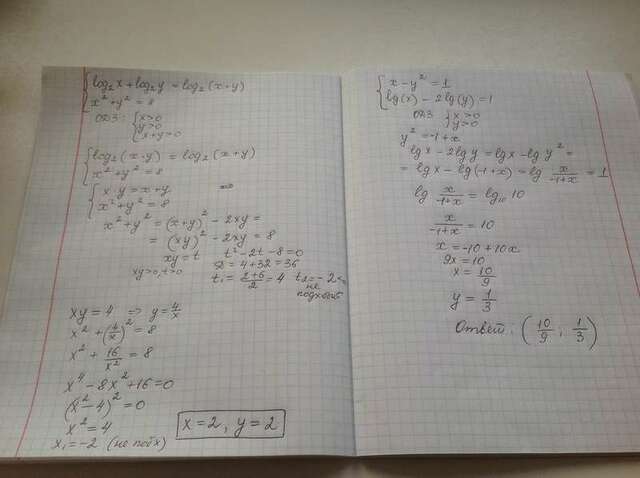 log₂x + log₂y = log₂(x+y)
x² + y² = 8
ОДЗ: x>0
y>0
x+y>0
log₂(x·y) = log₂(x+y)
x² + y² = 8
x·y = x+y ⇒
x² + y² = 8
x² + y² = (x+y)² − 2xy =
= (xy)² − 2xy = 8
xy = t t² − 2t − 8 = 0
D = 4 + 32 = 36
xy>0, t>0 t₁ = (2+6)/2 = 4 t₂ = −2 <0
не
подходит
xy = 4 ⇒ y = 4/x
x² + (4/x)² = 8
x² + 16/x² = 8
x⁴ − 8x² + 16 = 0
(x² − 4)² = 0
x² = 4
x₁ = −2 (не подх)
x = 2, y = 2
x − y² = 1
lg(x) − 2lg(y) = 1
ОДЗ x>0
y>0
y² = −1 + x
lg x − 2lg y = lg x − lg y² =
= lg x − lg(−1+x) = lg x/(−1+x) = 1
lg x/(−1+x) = lg₁₀ 10
x/(−1+x) = 10
x = −10 + 10x
9x = 10
x = 10/9
y = 1/3
Ответ: (10/9; 1/3)